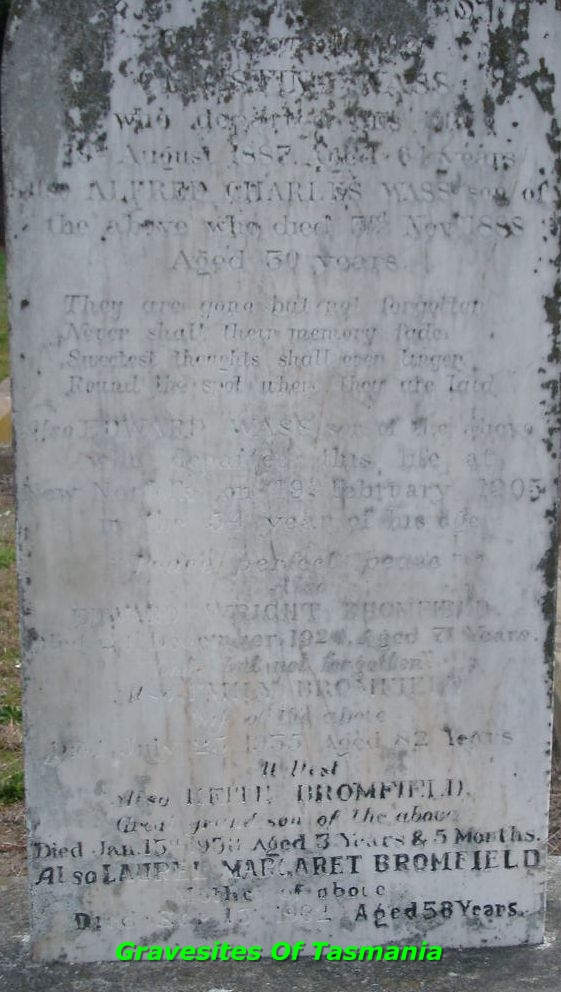 WASS
who departed this life
August 1887 Aged 6 years
also ALFRED CHARLES WASS son of
the above who died Nov 1888
Aged 30 years.
They are gone but not forgotten
Never shall their memory fade.
Sweetest thoughts shall ever linger
Round the spot where they are laid
Also EDWARD WASS son of the above
who departed this life at
New Norfolk on 19th February 1905
in the 54 year of his age
perfect peace
Also
EDWARD WRIGHT BROMFIELD.
Aged 71 Years.
but not forgotten
Also EMILY BROMFIELD
wife of the above
Died July 25 1935 Aged 82 Years
At Rest
Also KEITH BROMFIELD.
Great grand son of the above
Died Jan. 13th 1938 Aged 3 Years & 5 Months.
Also LAUREL MARGARET BROMFIELD
Mother of above
Died Aged 58 Years.
Gravesites Of Tasmania